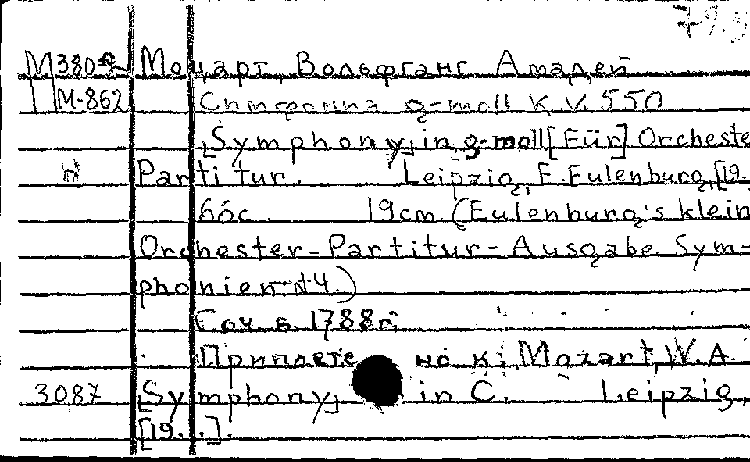 М380 Моцарт, Вольфганг Амадей
М-862 Симфония g-moll K.V. 550
[Symphony, in g-moll [Für] Orcheste
Partitur. Leipzig, E. Eulenburg, [19.
66с. 19cm (Eulenburg's klein
Orchester-Partitur-Ausgabe. Sym-
phonien 4.)
Соч. в 1788г.
Приплете но к: Mozart, W.A
3087 [Symphony, in C. Leipzig,
[19..].